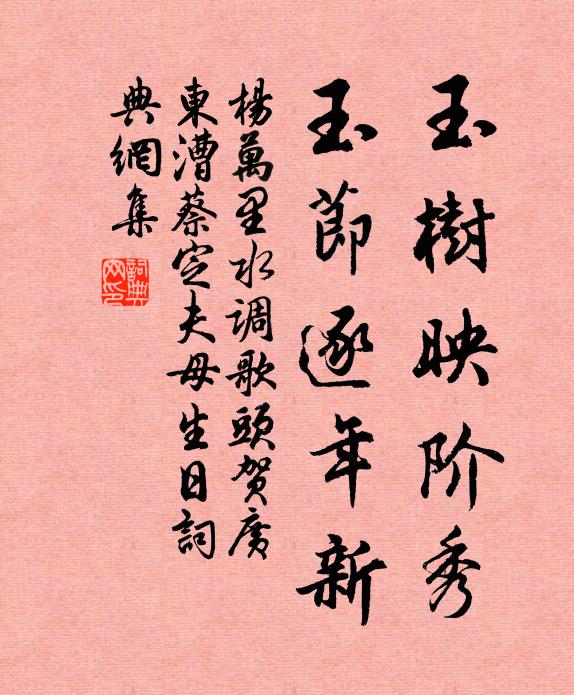 玉樹映阶秀
玉節逐年新
楊萬里水调歌頭賀廣
東漕蔡定夫母生日詞
典網集
詞典
网印